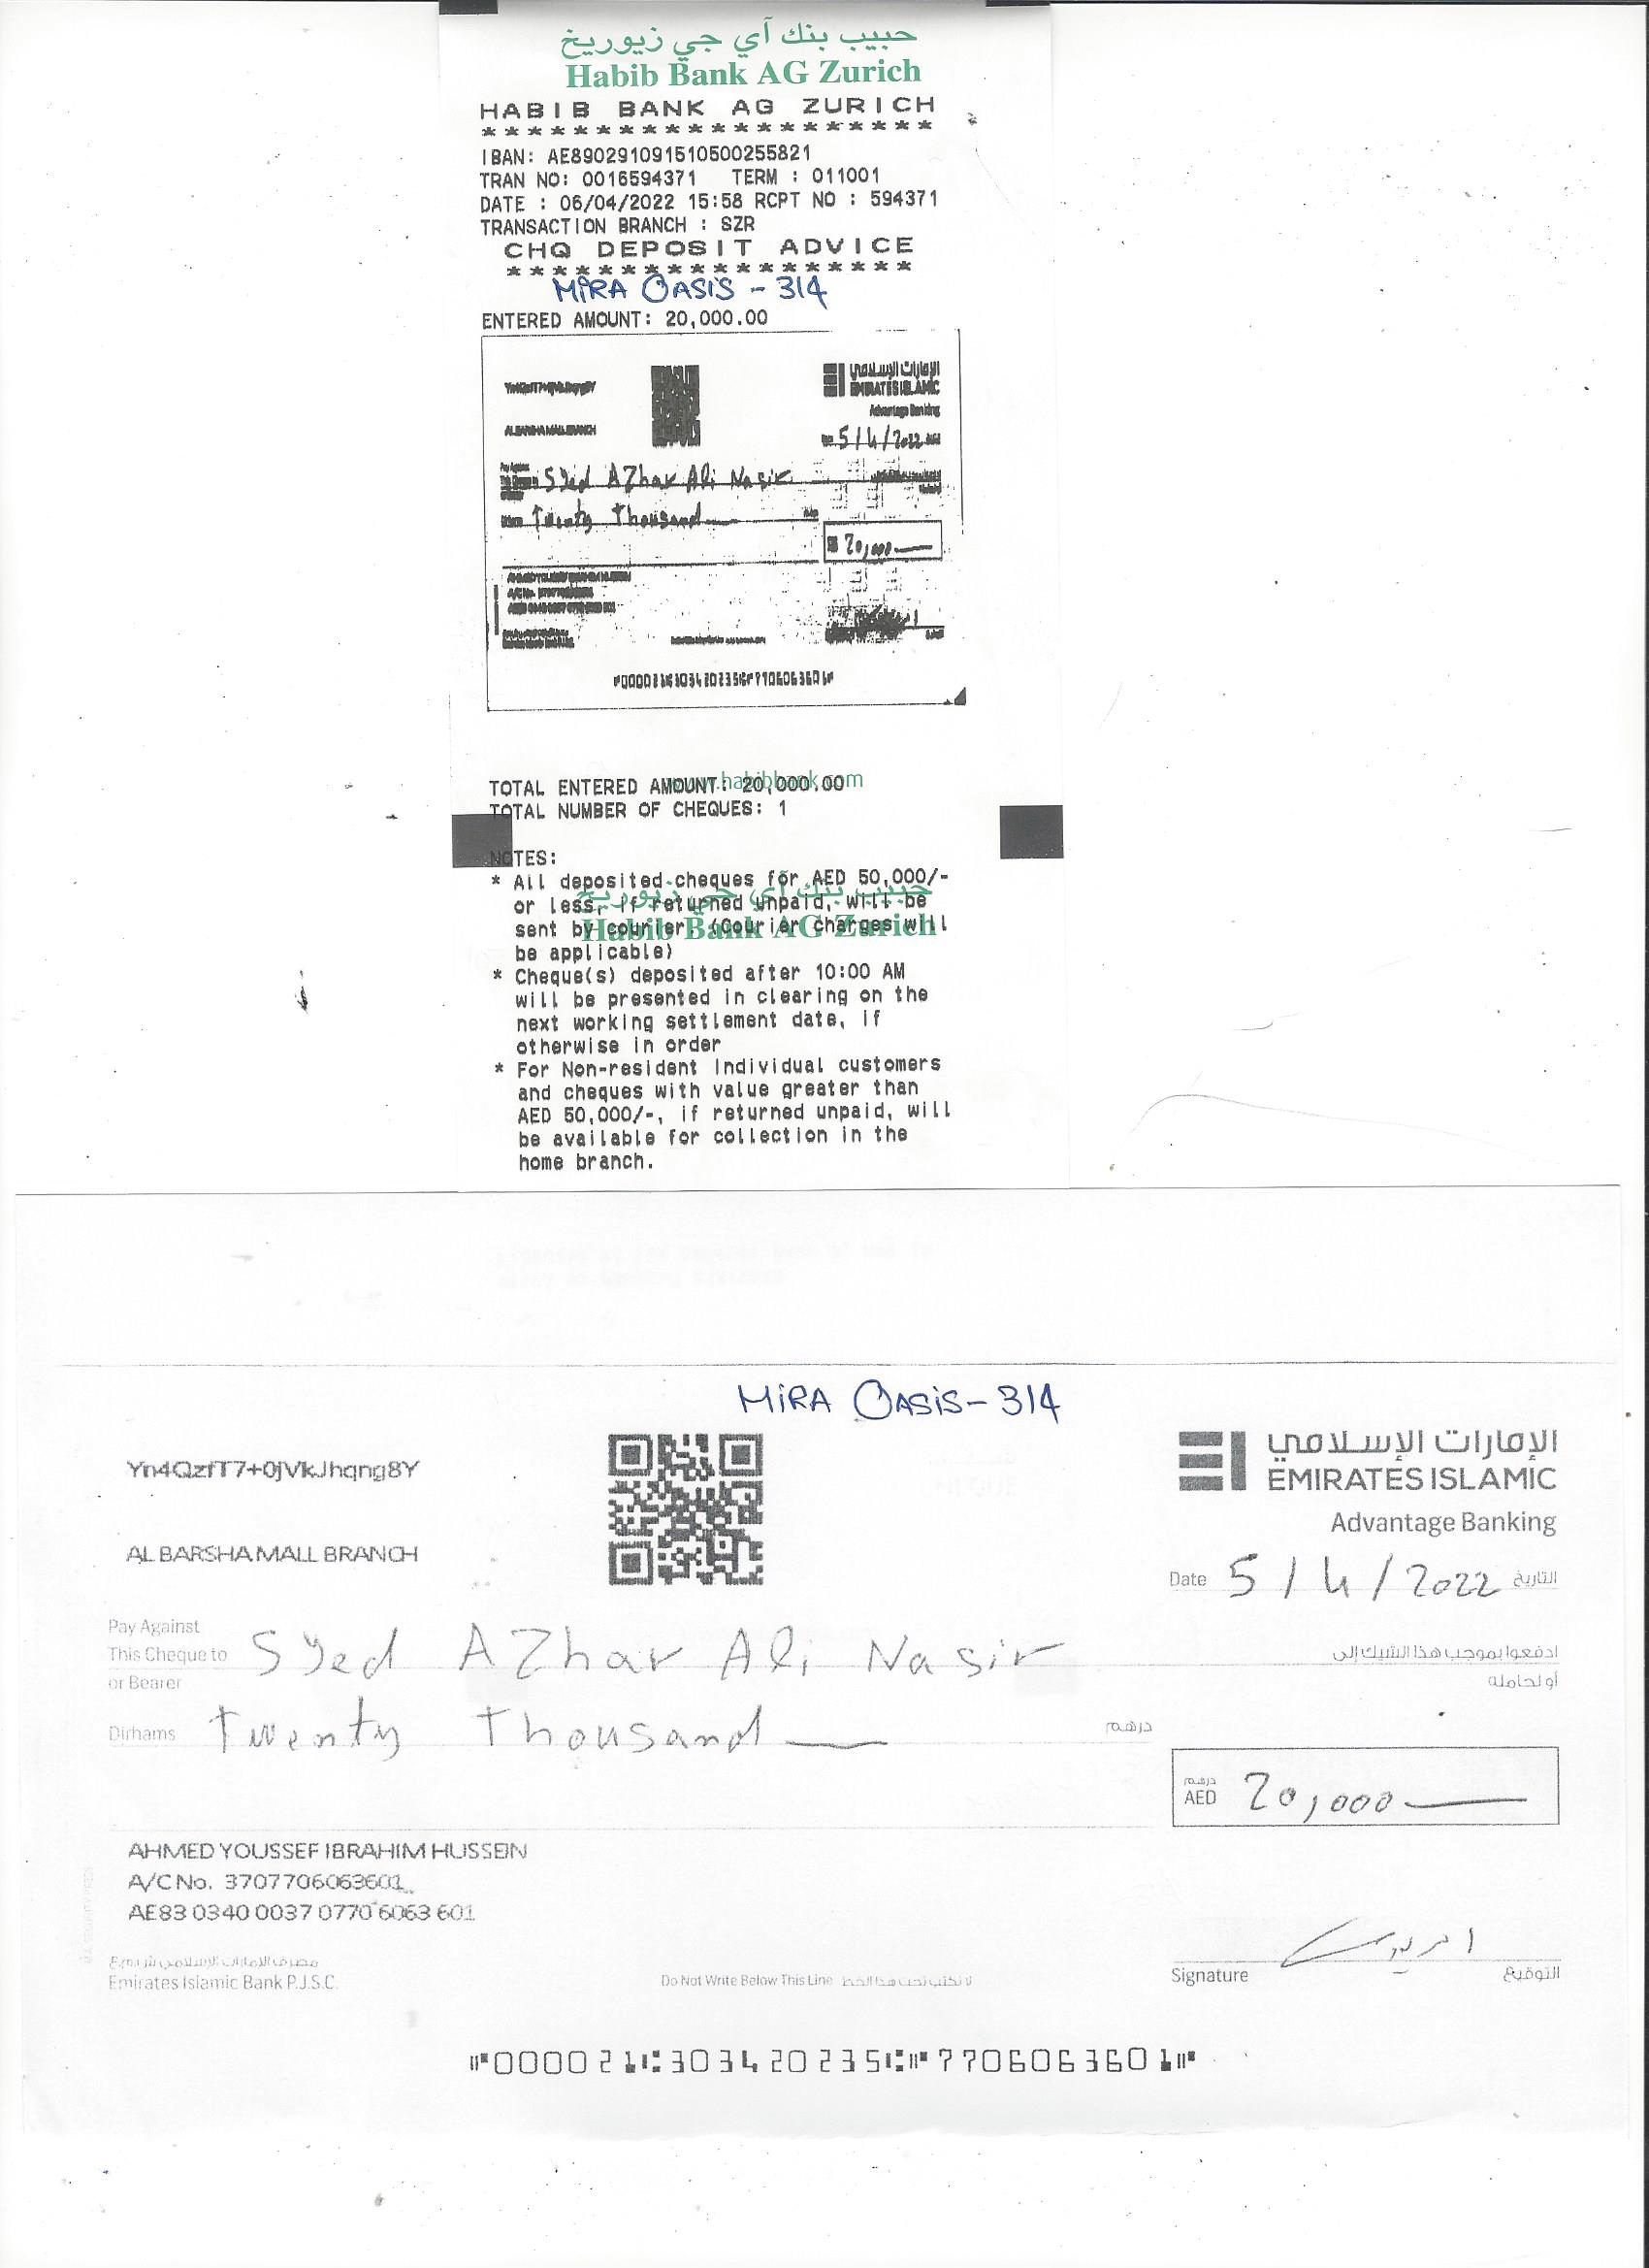 حبيب بنك آي جي زيوريخ
Habib Bank AG Zurich
HABIB BANK AG ZURICH
* * * * * * * * * * * * * * * * * * * *
IBAN: AE890291091510500255821
TRAN NO: 0016594371 TERM : 011001
DATE : 06/04/2022 15:58 RCPT NO : 594371
TRANSACTION BRANCH : SZR
CHQ DEPOSIT ADVICE
* * * * * * * * * * * * * * * * * *
MIRA OASIS - 314
ENTERED AMOUNT: 20,000.00
الإمارات الإسلامي
EMIRATES ISLAMIC
Advantage Banking
AL BARSHA MALL BRANCH
5/4/2022
Syed AZhar Ali Nasir
Twenty Thousand
20,000
www.habibbank.com
TOTAL ENTERED AMOUNT: 20,000.00
TOTAL NUMBER OF CHEQUES: 1
NOTES:
* All deposited cheques for AED 50,000/-
or less, if returned unpaid, will be
sent by courier. (Courier charges will
be applicable)
حبيب بنك آي جي زيوريخ
Habib Bank AG Zurich
* Cheque(s) deposited after 10:00 AM
will be presented in clearing on the
next working settlement date, if
otherwise in order
* For Non-resident Individual customers
and cheques with value greater than
AED 50,000/-, if returned unpaid, will
be available for collection in the
home branch.
MIRA OASIS - 314
Yn4QzfT7+0jVkJhqng8Y
الإمارات الإسلامي
EMIRATES ISLAMIC
Advantage Banking
AL BARSHA MALL BRANCH
Date 5/4/2022 التاريخ
Pay Against
This Cheque to
or Bearer
Syed AZhar Ali Nasir
ادفعوا بموجب هذا الشيك إلى
أو لحامله
Dirhams Twenty Thousand درهم
درهم
AED 20,000
AHMED YOUSSEF IBRAHIM HUSSEIN
A/C No. 3707706063601
AE83 0340 0037 0770 6063 601
مصرف الإمارات الإسلامي ش.م.ع
Emirates Islamic Bank P.J.S.C.
Do Not Write Below This Line لا تكتب تحت هذا الخط
Signature التوقيع
⑈000021⑆303420235⑆⑈7706063601⑈